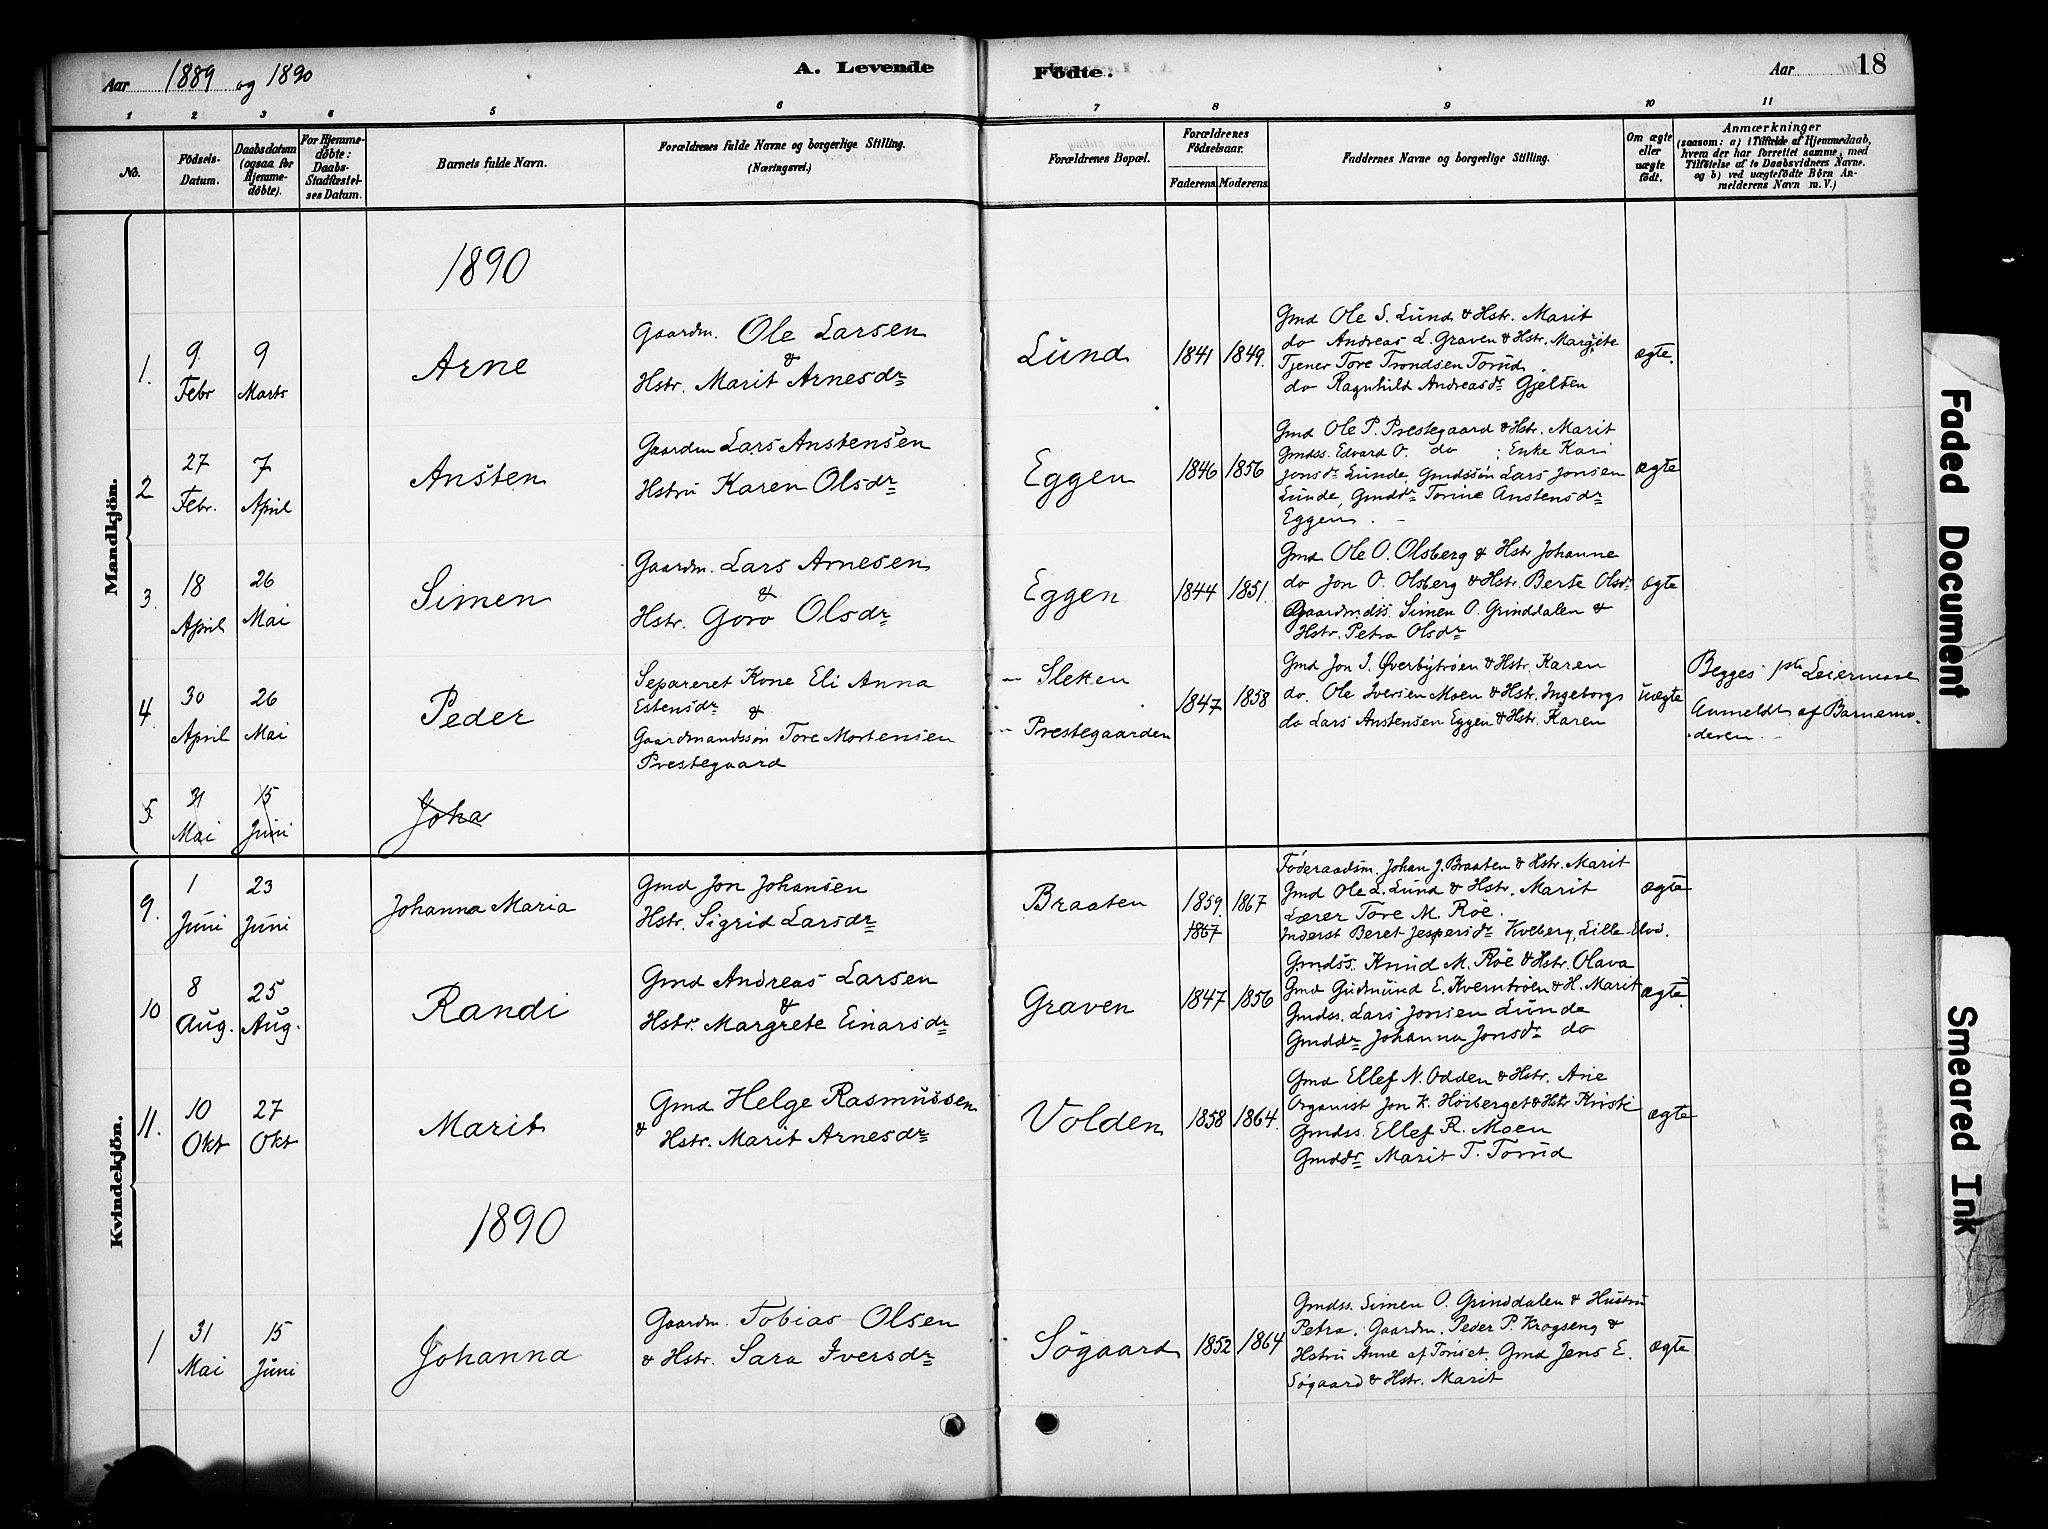 Aar 1889 og 1890
A. Levende
Födte.
Aar 18
1 2 3 4 5 6 7 8 9 10 11
No.
Födsels-
Datum.
Daabsdatum
(ogsaa for
Hjemme-
döbte).
For Hjemme-
döbte:
Daabs-
Stadfæstel-
ses Datum.
Barnets fulde Navn.
Forældrenes fulde Navne og borgerlige Stilling.
(Næringsvei.)
Forældrenes Bopæl.
Forældrenes
Födselsaar.
Faderens. Moderens.
Faddernes Navne og borgerlige Stilling.
Om ægte
eller
uægte
födt.
Anmærkninger
(saasom: a) i Tilfælde af Hjemmedaab,
hvem der har forrettet samme, med
Tilföielse af to Daabsvidners Navne,
og b) ved uægtefödte Börn An-
melderens Navn m. V.)
Mandkjön.
1890
1.
9
Febr
9
Marts
Arne
Gaardm. Ole Larsen
&
Hstr. Marit Arnesdr
Lund
1841 1849.
Gmd Ole S. Lund & Hstr. Marit
do Andreas L. Graven & Hstr. Margite
Tjener Tore Trondsen Torud.
do Ragnhild Andreasdr Gjelten
ægte.
2
27
Febr.
7
April
Ansten
Gaardm Lars Anstensen
Hstru Karen Olsdr
Eggen
1846 1856
Gmd Ole P. Prestegaard & Hstr. Marit
Gmdss. Edvard O. do ; Enke Kari
Jonsdr Lunde, Gmdssön Lars Jonsen
Lunde, Gmddr Torine Anstensdr
Eggen.
ægte
3.
18
April
26
Mai
Simen
Gaardm. Lars Arnesen
&
Hstr. Goro Olsdr
Eggen
1844 1851.
Gmd Ole O. Olsberg & Hstr Johanne
do Jon O. Olsberg & Hstr. Berte Olsdr
Gaardmdss. Simen O. Grinddalen &
Hstr. Petra Olsdr
ægte
4.
30
April
26
Mai
Peder
Separeret Kone Eli Anna
Estensdr &
Gaardmandssön Tore Mortensen
Prestegaard
- Sletten
- Prestegaarden
1847 1858
Gmd Jon I. Øverbytröen & Hstr. Karen
do. Ole Iversen Moen & Hstr. Ingeborg
do Lars Anstensen Eggen & Hstr. Karen
uægte
Begges 1ste Leiermaal
Anmeldt af Barnemo-
deren.
5.
31
Mai
15
Juni
Joha
Kvindekjön.
9.
1
Juni
23
Juni
Johanna Maria
Gmd Jon Johansen
Hstr. Sigrid Larsdr
Braaten
1859. 1867
1867
Föderaadsm. Johan J. Braaten & Hstr. Marit
Gmd Ole L. Lund & Hstr. Marit
Lærer Tore M. Röe.
Inderst Beret Jespersdr Kveberg, Lille-Elvd.
ægte
10
8
Aug.
25
Aug.
Randi
Gmd Andreas Larsen
&
Hstr. Margrete Einarsdr
Graven
1847 1856
Gmdss. Knud M. Röe & Hstr. Olava
Gmd Gudmund E. Kverntröen & H. Marit
Gmdss. Lars Jonsen Lunde
Gmddr Johanna Jonsdr do
ægte.
11.
10
Okt
27
Okt
Marit
Gmd Helge Rasmussen
& Hstr. Marit Arnesdr
Volden
1858 1864.
Gmd Ellef N. Odden & Hstr. Ane
Organist Jon K. Höiberget & Hstr Kristi
Gmdss. Ellef R. Moen
Gmddr Marit T. Torud
ægte
1890
1
31
Mai
15
Juni
Johanna
Gaardm. Tobias Olsen
& Hstr. Sara Iversdr
Sögaard
1852 1864
Gmdss. Simen O. Grinddalen & Hustru
Petra. Gaardm. Peder P. Krogseng &
Hstru Anne af Tönset. Gmd Jens E.
Sögaard & Hstr. Marit
ægte
Faded Document
Smeared Ink